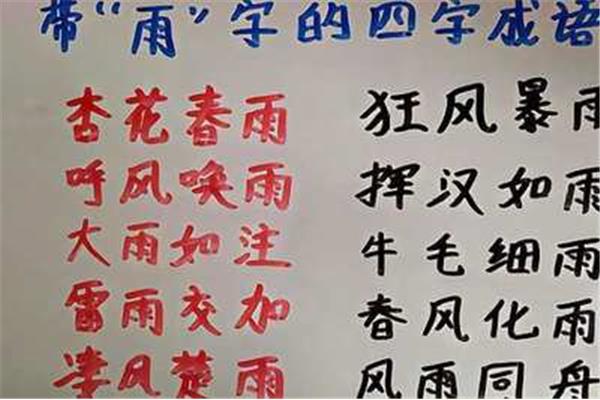 带“雨”字的四字成语
杏花春雨 狂风暴雨
呼风唤雨 挥汉如雨
大雨如注 牛毛细雨
雷雨交加 春风化雨
凄风楚雨 风雨同舟